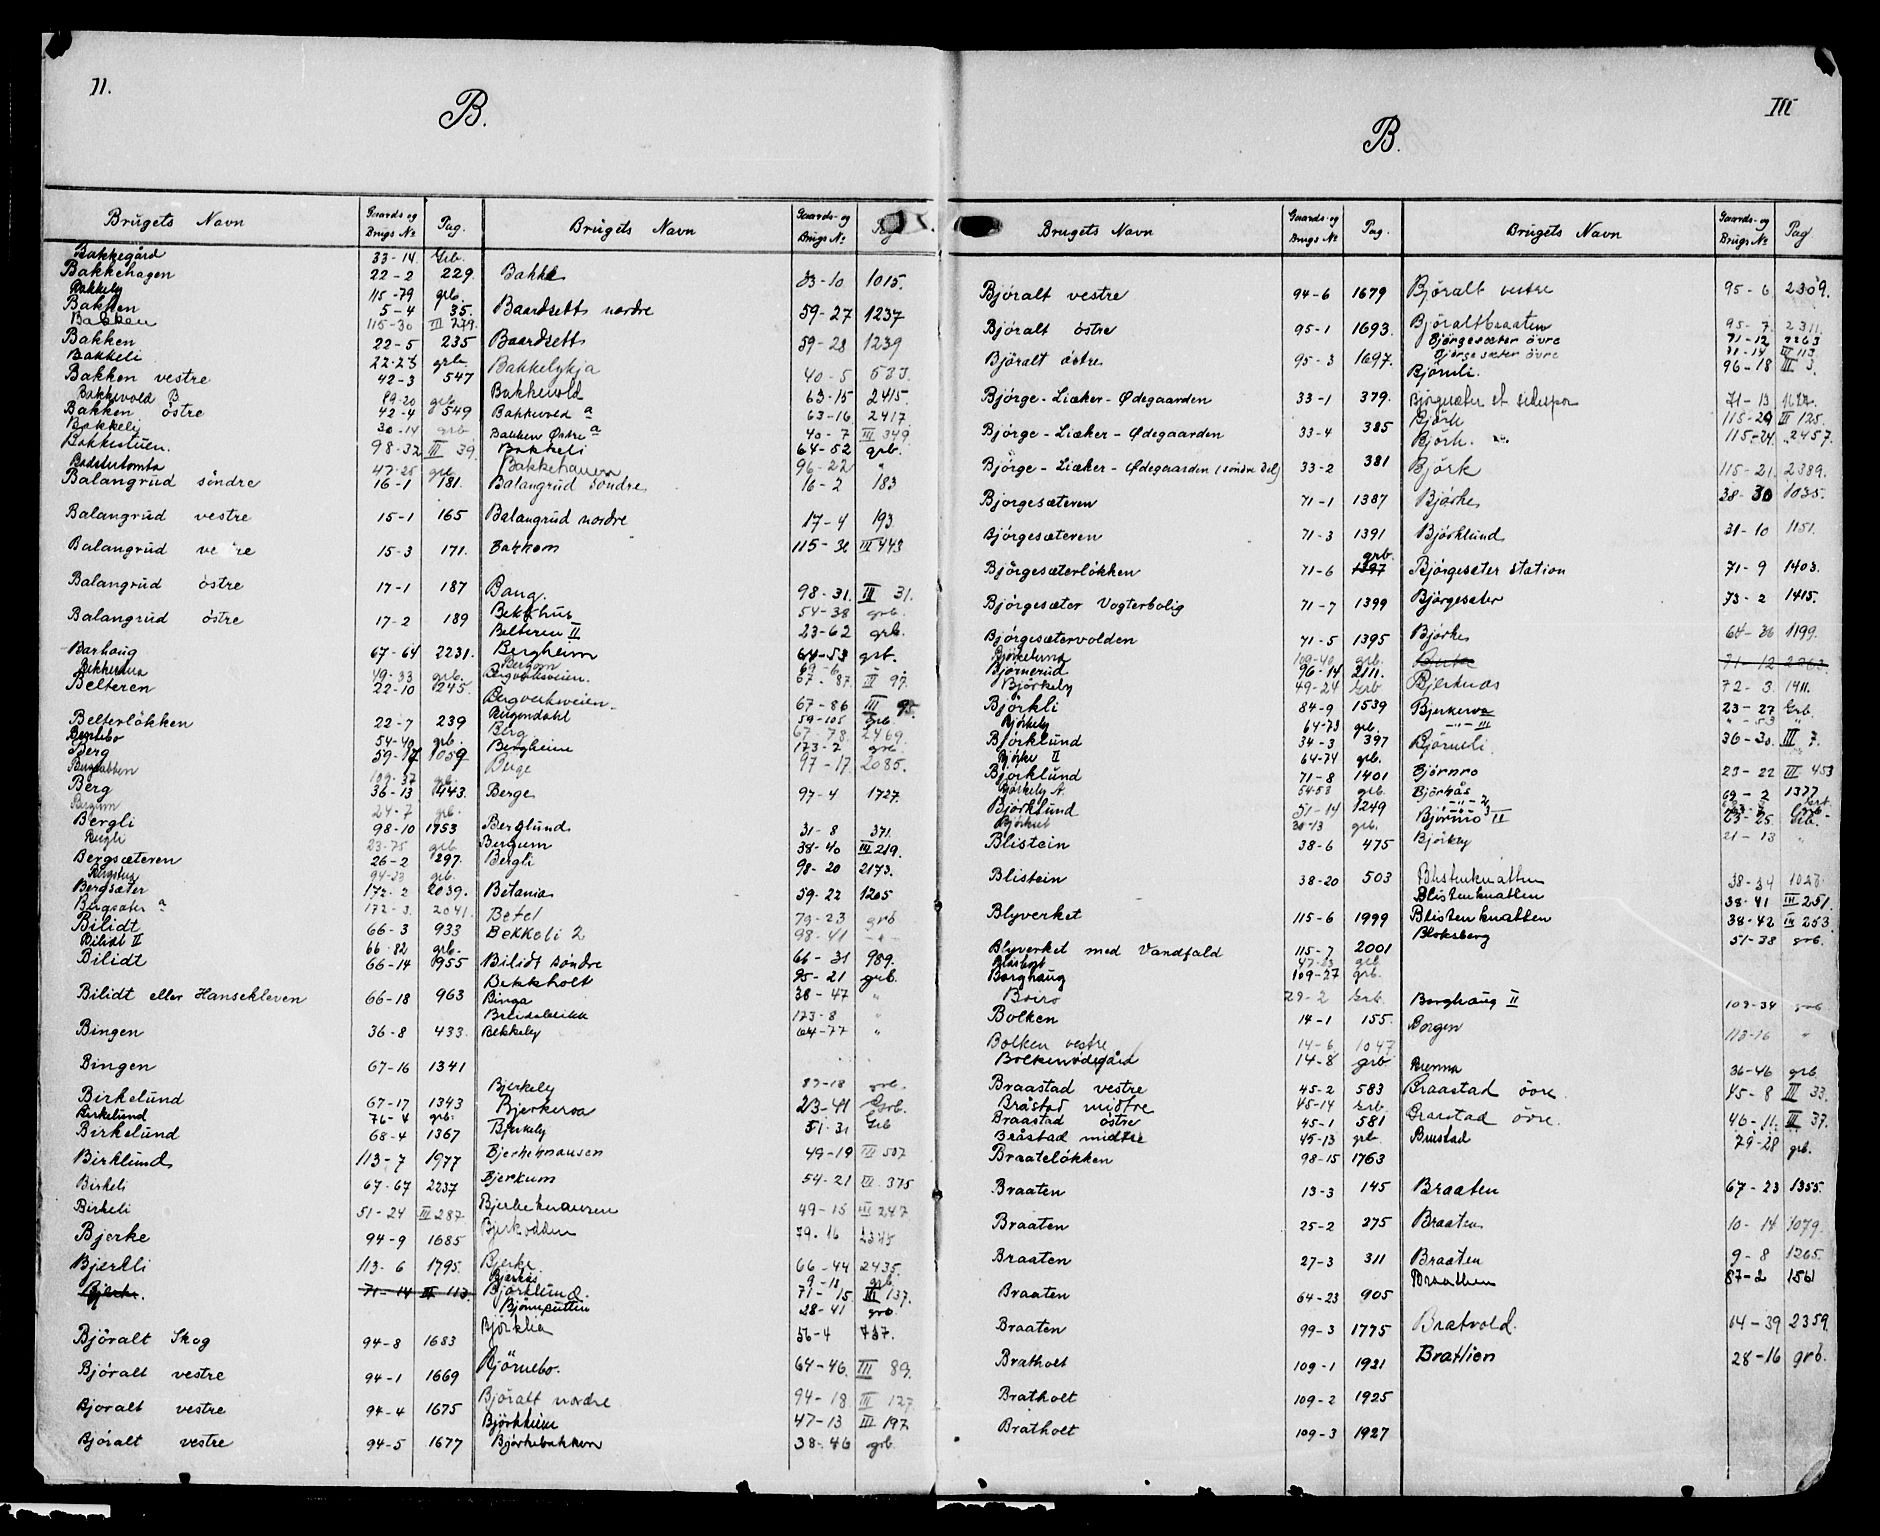 II.
B.
Brugets Navn Gaards- og Brugs No Pag.
Bakkegård 33-14. Grb.
Bakkehagen 22-2 229.
Bakkely 115-79 grb.
Bakken 5-4 35.
Bakken 115-30 III 279.
Bakken 22-5 235
Bakkeli 22-23 grb.
Bakken vestre 42-3 547
Bakkevold B 89-20 grb
Bakken östre 42-4 549
Bakkeli 30-14 grb
Bakkestuen. 98-32 III 39.
Badstutomta 47-25 grb
Balangrud söndre 16-1 181.
Balangrud vestre 15-1 165
Balangrud vestre 15-3 171.
Balangrud östre 17-1 187
Balangrud östre 17-2 189
Barhaug 67-64 2231.
Bekkestua 49-33 grb.
Belteren 22-10 245.
Belterlökken 22-7 239
54-40 grb.
Berg 59-17 1059
109-37 grb.
Berg 36-13 443.
Bergum 24-7 grb.
Bergli 98-10 1753
Bergli 23-75 grb
Bergsæteren 26-2 297.
Bergstua 94-23 grb.
Bergsæter 172-2 2039.
Bergsæter a 172-3. 2041.
Bilidt 66-3 933
Bilidt II 66-82 grb.
Bilidt 66-14 955
Bilidt eller Hansekleven 66-18 963
Bingen 36-8 433.
Bingen 67-16 1341
Birkelund 67-17 1343
Birkelund 76-4 grb.
Birkelund 68-4 1367
Birklund 113-7 1977
Birkeli 67-67 2237
Birkeli 51-24 III 287
Bjerke 94-9 1685
Bjertli 113-6 1795.
Bjerke. 71-14 III 113.
Björalt Skog 94-8 1683
Björalt vestre 94-1 1669
Björalt vestre 94-4 1675
Björalt vestre 94-5 1677
Brugets Navn Gaards- og Brugs No
Bakke 83-10 1015.
Baardsett nordre 59-27 1237
Baardsett 59-28 1239
Bakkelykja 40-5 533.
Bakkevold 63-15 2415.
Bakkevold a 63-16 2417.
Bakken Østre a 40-7 III 349.
Bakkeli 64-52 grb.
Bakkehaugen 96-22 "
Balangrud söndre 16-2 183
Balangrud nordre 17-4 193.
Bakkom 115-36 III 443
Bang. 98-31. III 31.
Bekkhus 54-38 grb.
Belteren II 23-62 grb.
Bergheim 64-53 grb.
Bergom 69-6
Bergverksveien. 67-87. III 97.
Bergverksveien. 67-86 III 95.
Bergendahl 59-105 grb.
Berg 67-78. 2469.
Bergheim 173-7 grb
Berge 97-17. 2085.
Berge 97-4 1727.
Berglund 31-8 371.
Bergum 38-40 III 219.
Bergli 98-20 2173.
Betania 59-22 1205
Betel 79-23 grb
Bekkeli 2 98-41 -"-
Bilidt söndre 66-31 989.
Bekkholt 95-21 grb.
Binga 38-47 "
Breidablikk 173-8 "
Bekkely 64-77 "
Bjerkely 89-18 grb.
Bjerkeroa 23-41 Grb.
Bjerkely 51-31 Grb
Bjerkehaugen 49-19 III 507
Bjerkum 54-21 III 375
Bjerkehaugen 49-15 III 247
Bjerkodden 79-16 2375
Bjerke. 66-44 2435.
Bjerkås 9-11 grb.
Björklund. 71-15 III 137.
Björnputten 28-41 grb.
Björklia 56-4 757.
Björnebo. 64-46 III 89.
Björalt nordre 94-18 III 127
Björkheim 47-13 III 197
Björkebakken 38-46 grb.
III
B.
Brugets Navn Gaards- og Brugs No Pag.
Björalt vestre 94-6 1679
Björalt östre 95-1 1693.
Björalt östre 95-3 1697.
Björge-Liæker-Ødegaarden 33-1 379.
Björge-Liæker-Ødegaarden 33-4 385
Björge-Liæker-Ødegaarden (söndre del) 33-2 381
Björgesæteren 71-1 1387
Björgesæteren 71-3 1391
Björgesæterlökken 71-6 grb. 1397
Björgesæter Vogterbolig 71-7 1399
Björgesætervolden 71-5 1395
Björkelund 109-40 grb.
Björnerud 96-14 2111.
Björkely 49-24 Grb
Björkli 84-9 1539
Björkely 64-73 grb.
Björklund 34-3 397
Björke II 64-74 grb.
Björklund 71-8 1401
Björkely A. 54-58 grb.
Björklund 51-14 1249
30-13 grb.
Blistein 38-6 475
Blistein 38-20 503
Blyverket 115-6 1999
Blyverket med Vandfald 115-7 2001
47-23 grb
Borghaug 109-27 grb.
Boiro 29-2 Grb.
Bolken 14-1 155.
Bolken vestre 14-6 1047
Bolkenödegård 14-8 grb
Braastad vestre 45-2 583
Bråstad midtre 45-14 Grb
Braastad östre 45-1 581
Bråstad midtre 45-13 grb
Braatelökken 98-15 1763
Braaten 13-3 145
Braaten 25-2 275
Braaten 27-3 311
Braaten 64-23 905
Braaten 99-3 1775
Bratholt 109-1 1921
Bratholt 109-2 1925
Bratholt 109-3 1927
Brugets Navn Gaards- og Brugs No Pag
Björalt vestre 95-6 2309.
Björaltbraaten 95-7 2311.
Björgesæter övre 71-12 2263
Björgesæter övre 71-14 III 113.
Björnli. 96-18 III 3.
Björgesæter st. sidespor 71-13
Björk 115-20 III 125.
Björk. 115-24 2457.
Björk 115-21. 2389.
Björke 38-30 1035.
Björklund 31-10 1151.
Björgesæter station 71-9 1403.
Björgesæter 73-2 1415.
Björke 64-36 1199.
71-12 2263
Bjerknes 72-3. 1411.
Bjerkeroa 23-27 Grb.
-"- III " -53 "
Björneli. 36-30. III 7.
Björnro 23-22 III 453
Björkås 69-2 1377
-"- 2
-"- 3
Björnro II 23-25 Grb.
Björkely 21-13 "
Blisteinknatten 38-34 1027.
Blisteinknatten 38-41 III 251.
Blisteinknatten 38-42 III 253.
Bloksberg 51-38 grb.
Borghaug II 109-34 grb
Borgen 113-16 "
Brenna 36-46 grb
Braastad övre. 45-8 III 33.
Braastad övre. 46-11. III 37.
Brustad 79-28 grb.
Braaten 67-23 1355.
Braaten 10-14 1079.
Braaten 9-8 1265.
Braathen 87-2 1561
Bratvold. 14-39 2359.
Brattlien 28-16 grb.